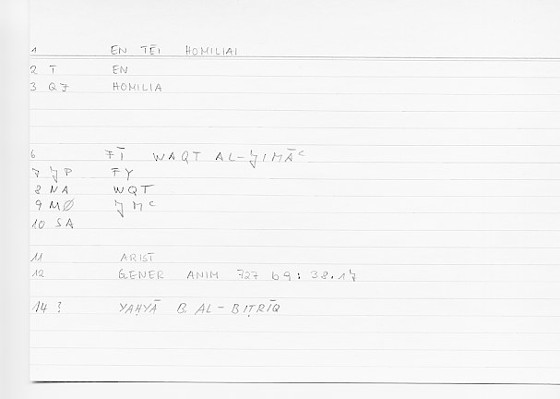 1 EN TĒI HOMILIAI
2 T EN
3 QJ HOMILIA
6 FĪ WAQT AL-ǦIMĀᶜ
7 ǦP FY
8 NA WQT
9 MØ ǦMᶜ
10 SA
11 ARIST
12 GENER ANIM 727 b9: 38.17
14 ? YAḤYĀ B. AL-BIṬRĪQ